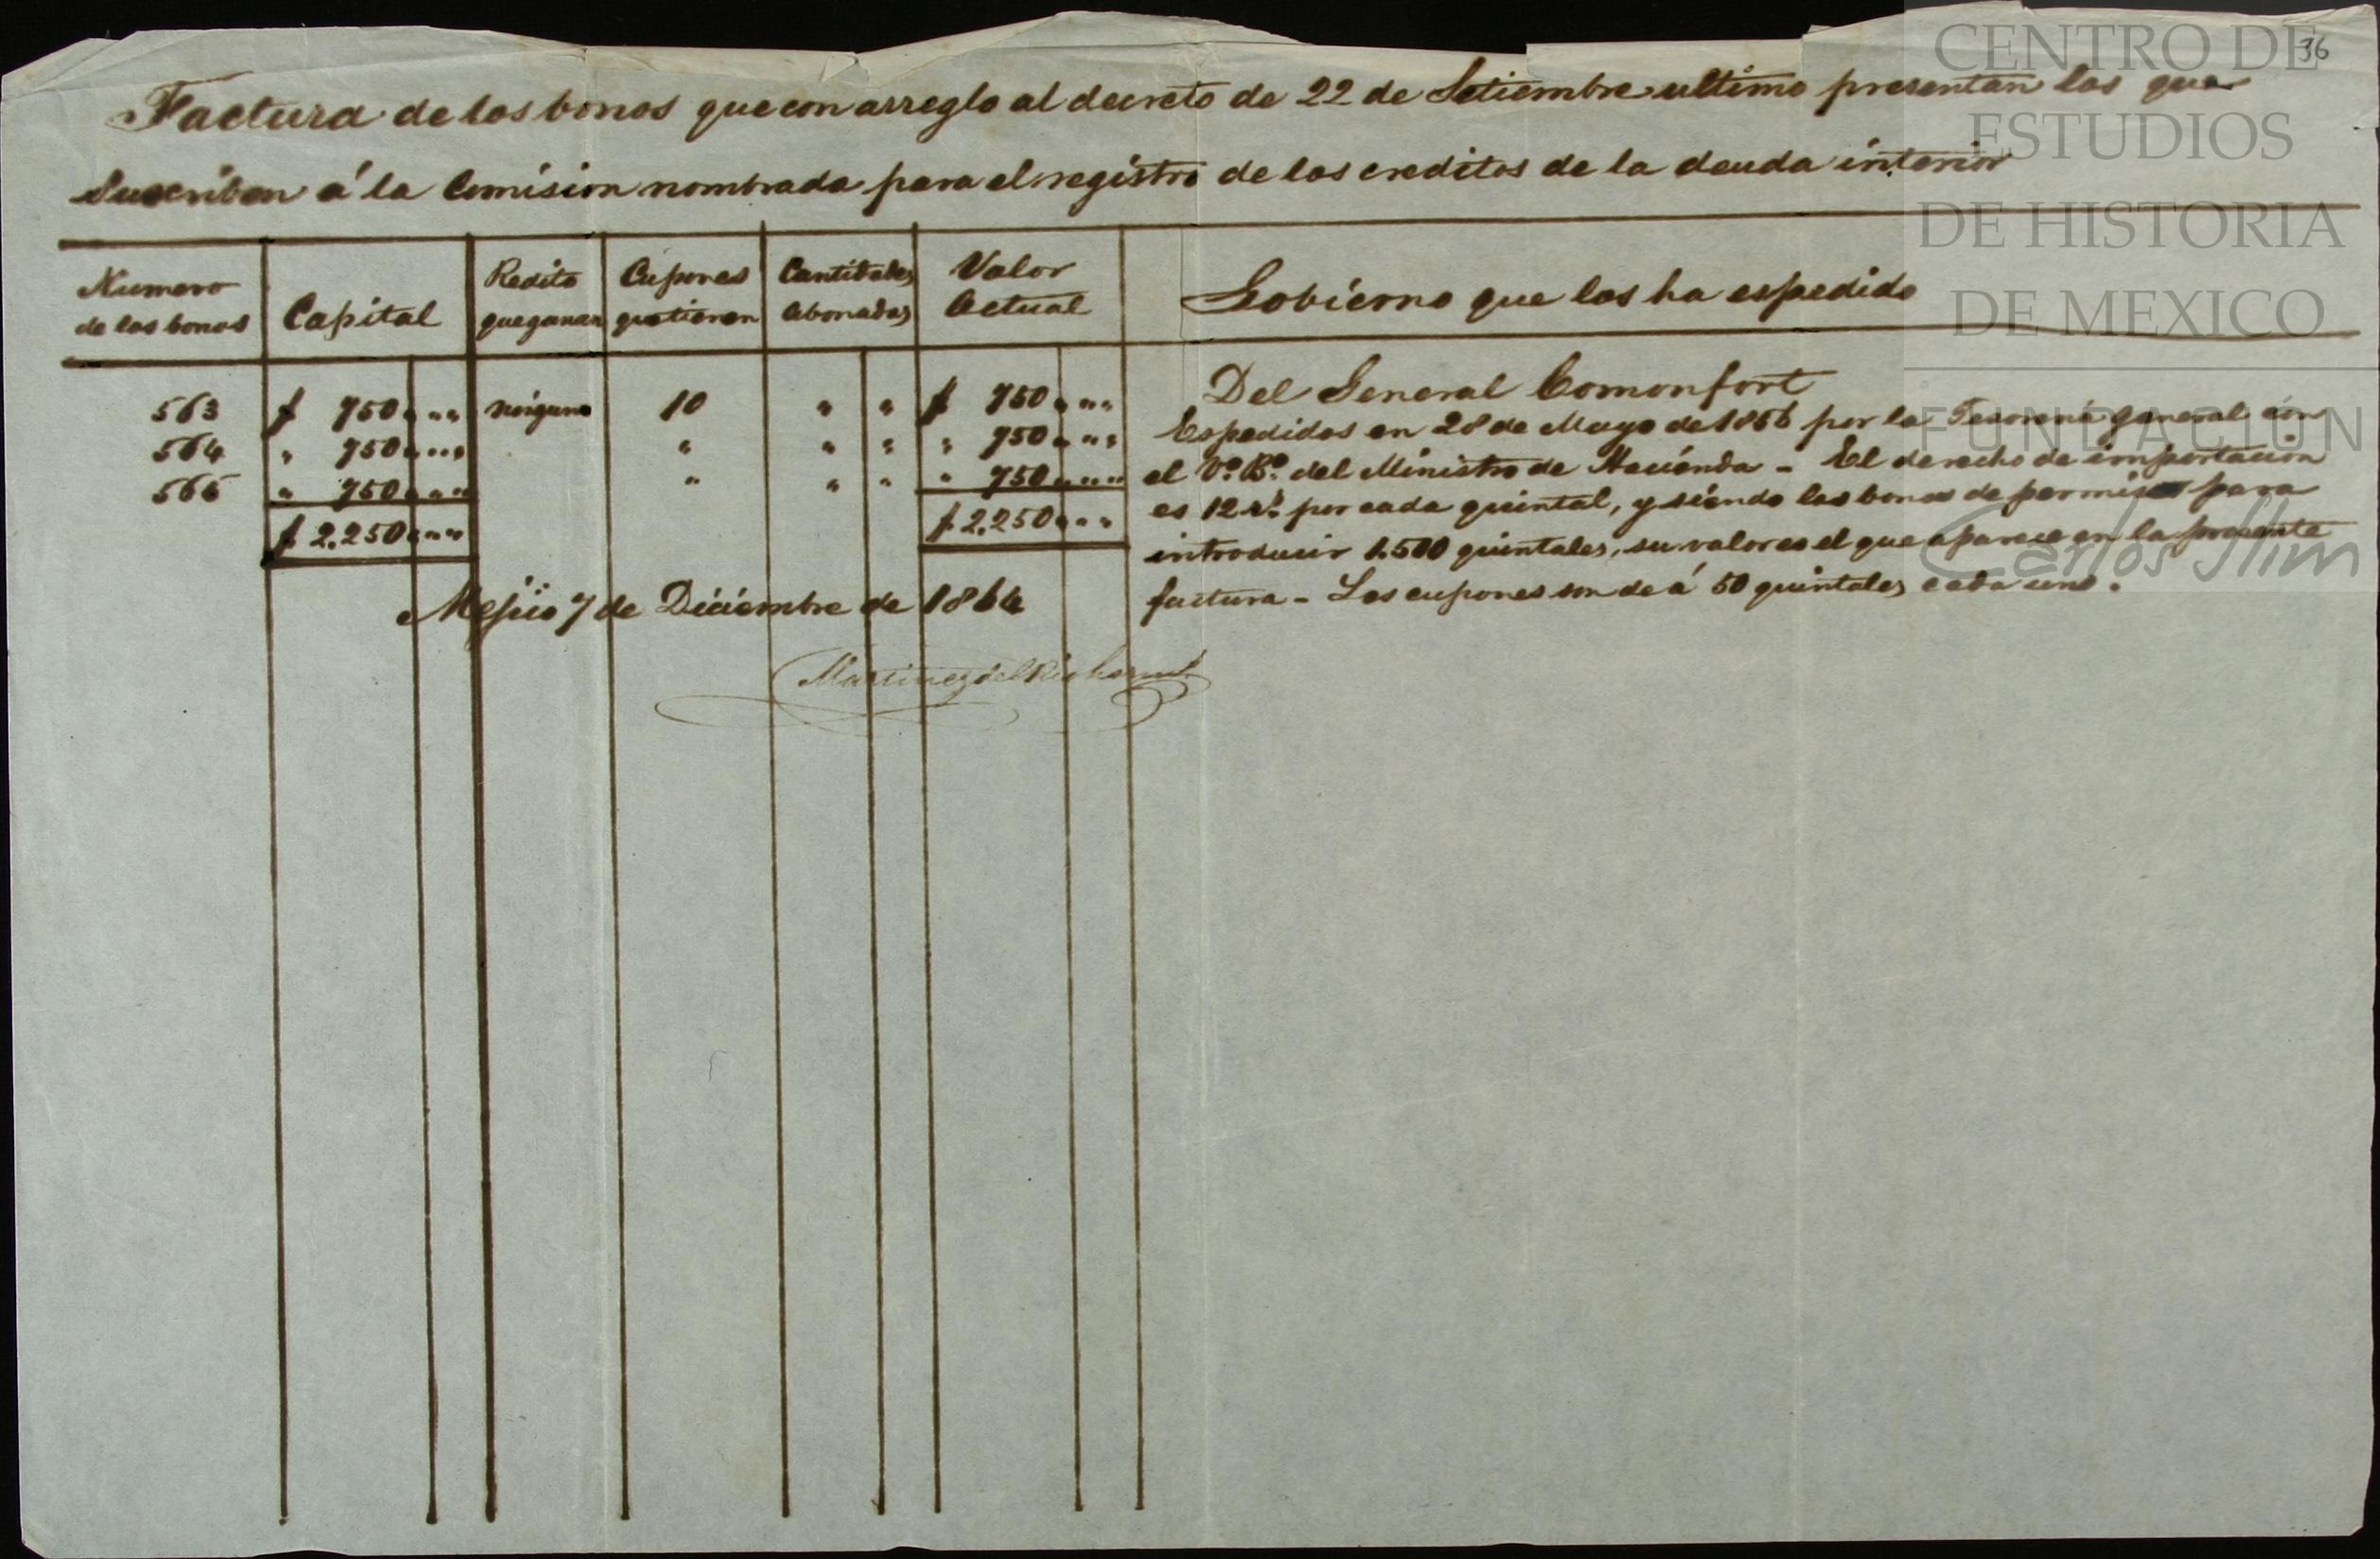 36
Factura de los bonos que con arreglo al decreto de 22 de Setiembre ultimo presentan los que
Suscriben á la Comision nombrada para el registro de los creditos de la deuda interior
Numero de los bonos | Capital | Redito que ganan | Cupones que tienen | Cantidades Abonadas | Valor Actual | Gobierno que los ha espedido
563 | $ 750 " " " | ninguno | 10 | " | " | $ 750 " " "
564 | " 750 " " " | " | " | " | " 750 " " "
565 | " 750 " " " | " | " | " | " 750 " " "
$ 2.250 " " " | $ 2.250 " " "
Del General Comonfort
Espedidos en 28 de Mayo de 1856 por la Tesoreria general con
el Vº. Bº. del Ministro de Hacienda - El derecho de importacion
es 12 rs. por cada quintal, y siendo los bonos de permisos para
introducir 1.500 quintales, su valor es el que aparece en la presente
factura - Los cupones son de á 50 quintales cada uno.
Mejico 7 de Diciembre de 1864
Martinez del Rio herms.
CENTRO DE
ESTUDIOS
DE HISTORIA
DE MEXICO
FUNDACIÓN
Carlos Slim